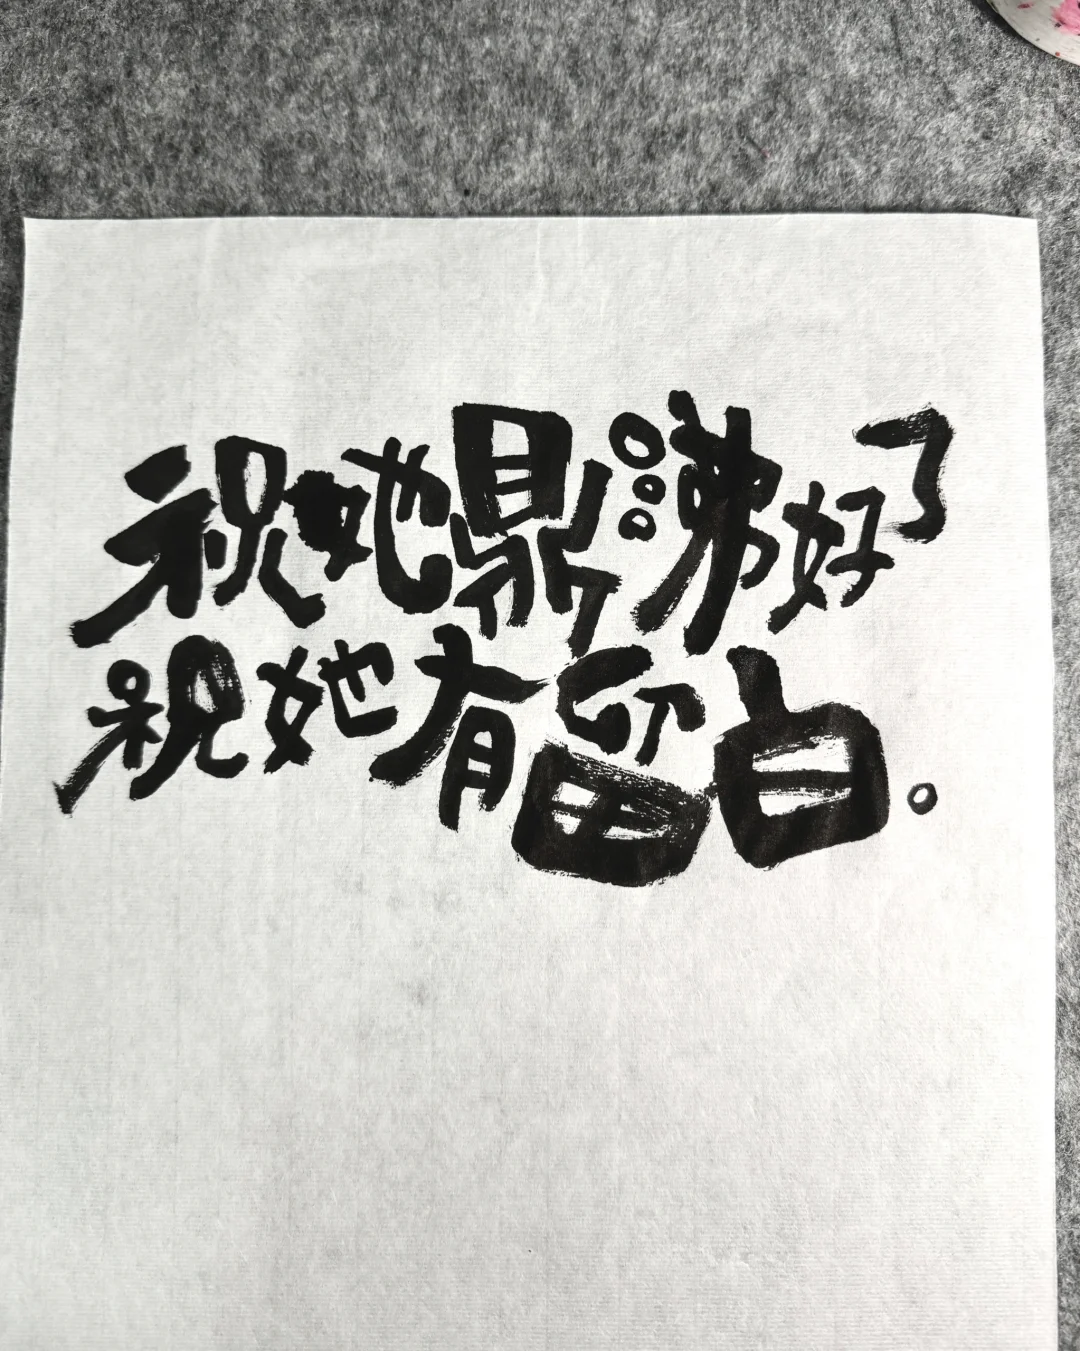 祝她鼎沸好了
祝她有留白。